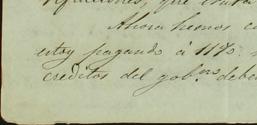 que entra
Ahora hemos
estoy pagando á 11%
creditos del gob.no debe